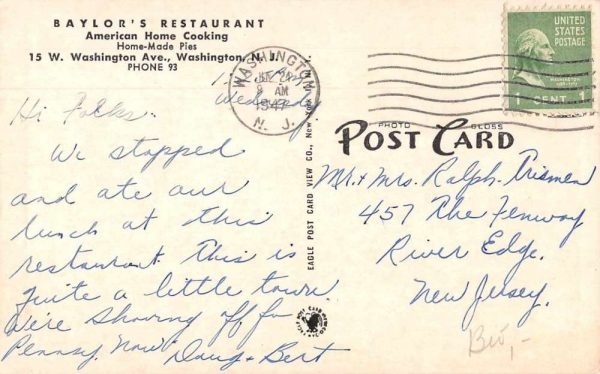 BAYLOR'S RESTAURANT
American Home Cooking
Home-Made Pies
15 W. Washington Ave., Washington, N. J.
PHONE 93
WASHINGTON
9 AM
1947
N. J.
UNITED
STATES
POSTAGE
WASHINGTON
1 CENT 1
Wednesday
Hi Folks:
We stopped
and ate our
lunch at this
restaurant. This is
quite a little town.
We're shoving off for
Pennsy. now. Doug + Bert
EAGLE POST CARD VIEW CO., New York
PHOTO GLOSS
POST CARD
Mr. + Mrs. Ralph
457 The Fenway
River Edge.
New Jersey.